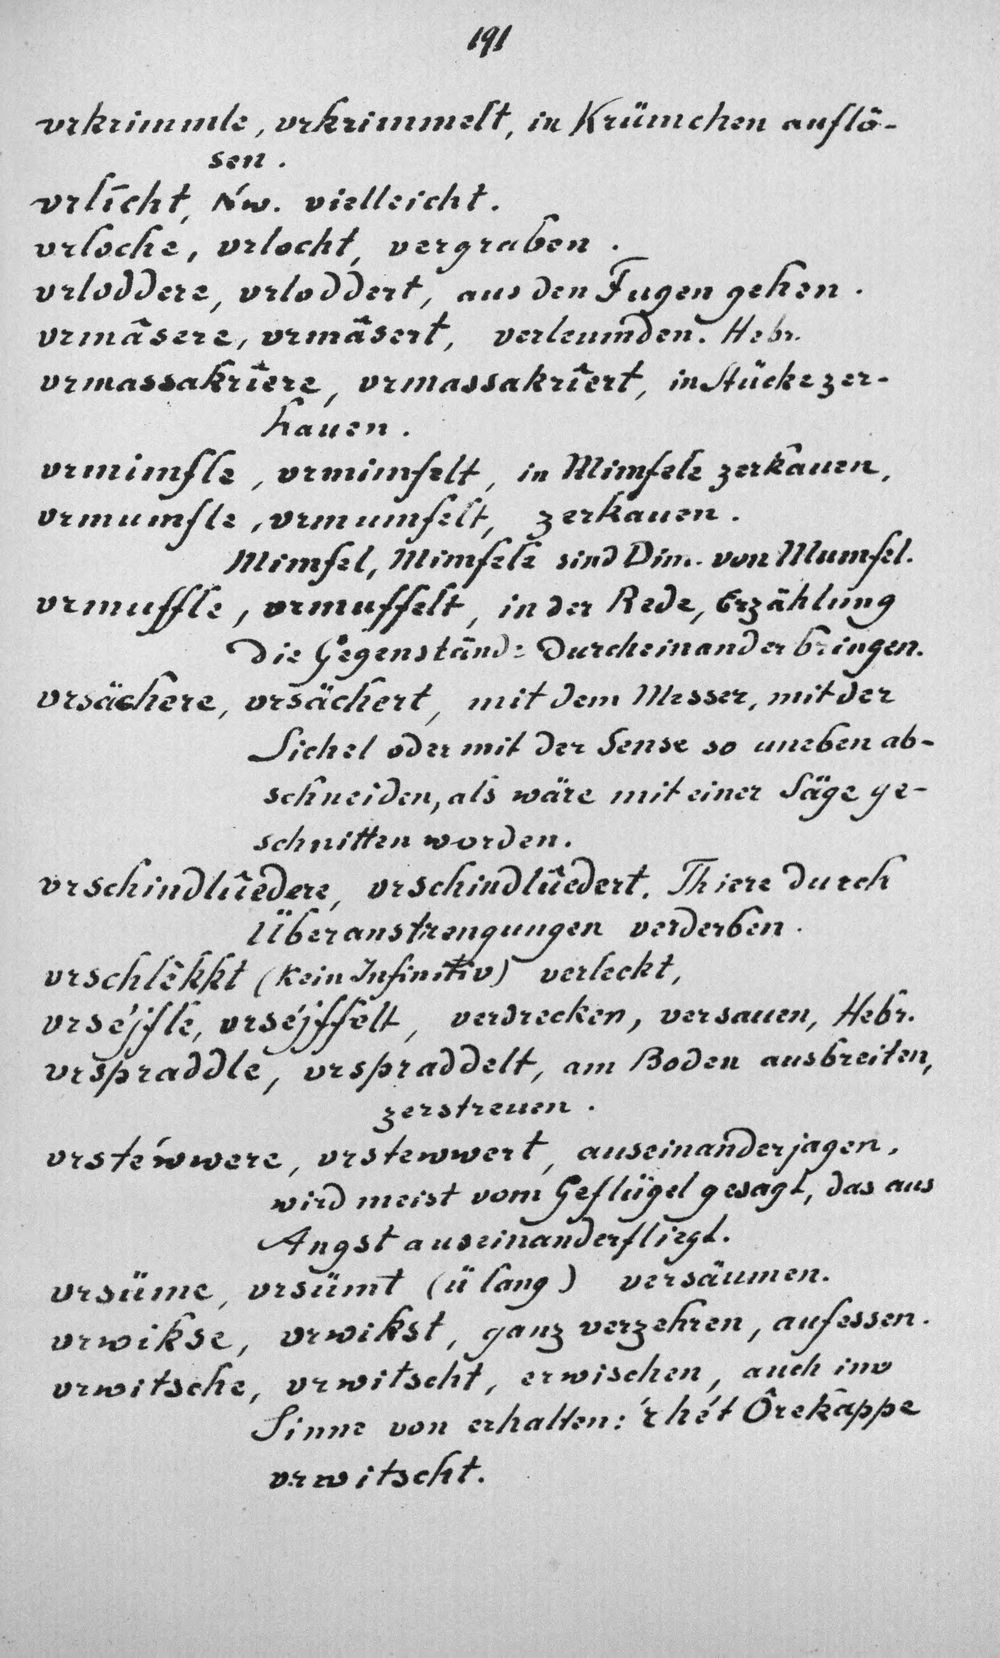 191
vrkrimmle, vrkrimmelt, in Krümchen auflö-
sen.
vrlīcht, Nw. vielleicht.
vrloche, vrlocht, vergraben.
vrloddere, vrloddert, aus den Fugen gehen.
vrmâsere, vrmâsert, verleumden. Hebr.
vrmassakrîere, vrmassakrîert, in Stücke zer-
hauen.
vrmimfle, vrmimfelt, in Mimfele zerkauen,
vrmumfle, vrmumfelt, zerkauen.
Mimfel, Mimfele sind Dim. von Mumfel.
vrmuffle, vrmuffelt, in der Rede, Erzählung
die Gegenstände durcheinander bringen.
vrsächere, vrsächert, mit dem Messer, mit der
Sichel oder mit der Sense so uneben ab-
schneiden, als wäre mit einer Säge ge-
schnitten worden.
vrschindlûedere, vrschindlûedert, Thiere durch
Überanstrengungen verderben.
vrschlèkkt (kein Infinitiv) verleckt,
vrséjfle, vrséjffelt, verdrecken, versauen, Hebr.
vrspraddle, vrspraddelt, am Boden ausbreiten,
zerstreuen.
vrsténwere, vrstenwert, auseinanderjagen,
wird meist vom Geflügel gesagt, das aus
Angst auseinanderfliegt.
vrsüme, vrsümt (ü lang) versäumen.
vrwikse, vrwikst, ganz verzehren, aufessen.
vrwitsche, vrwitscht, erwischen, auch im
Sinne von erhalten: 'r hét Ôrekàppe
vrwitscht.